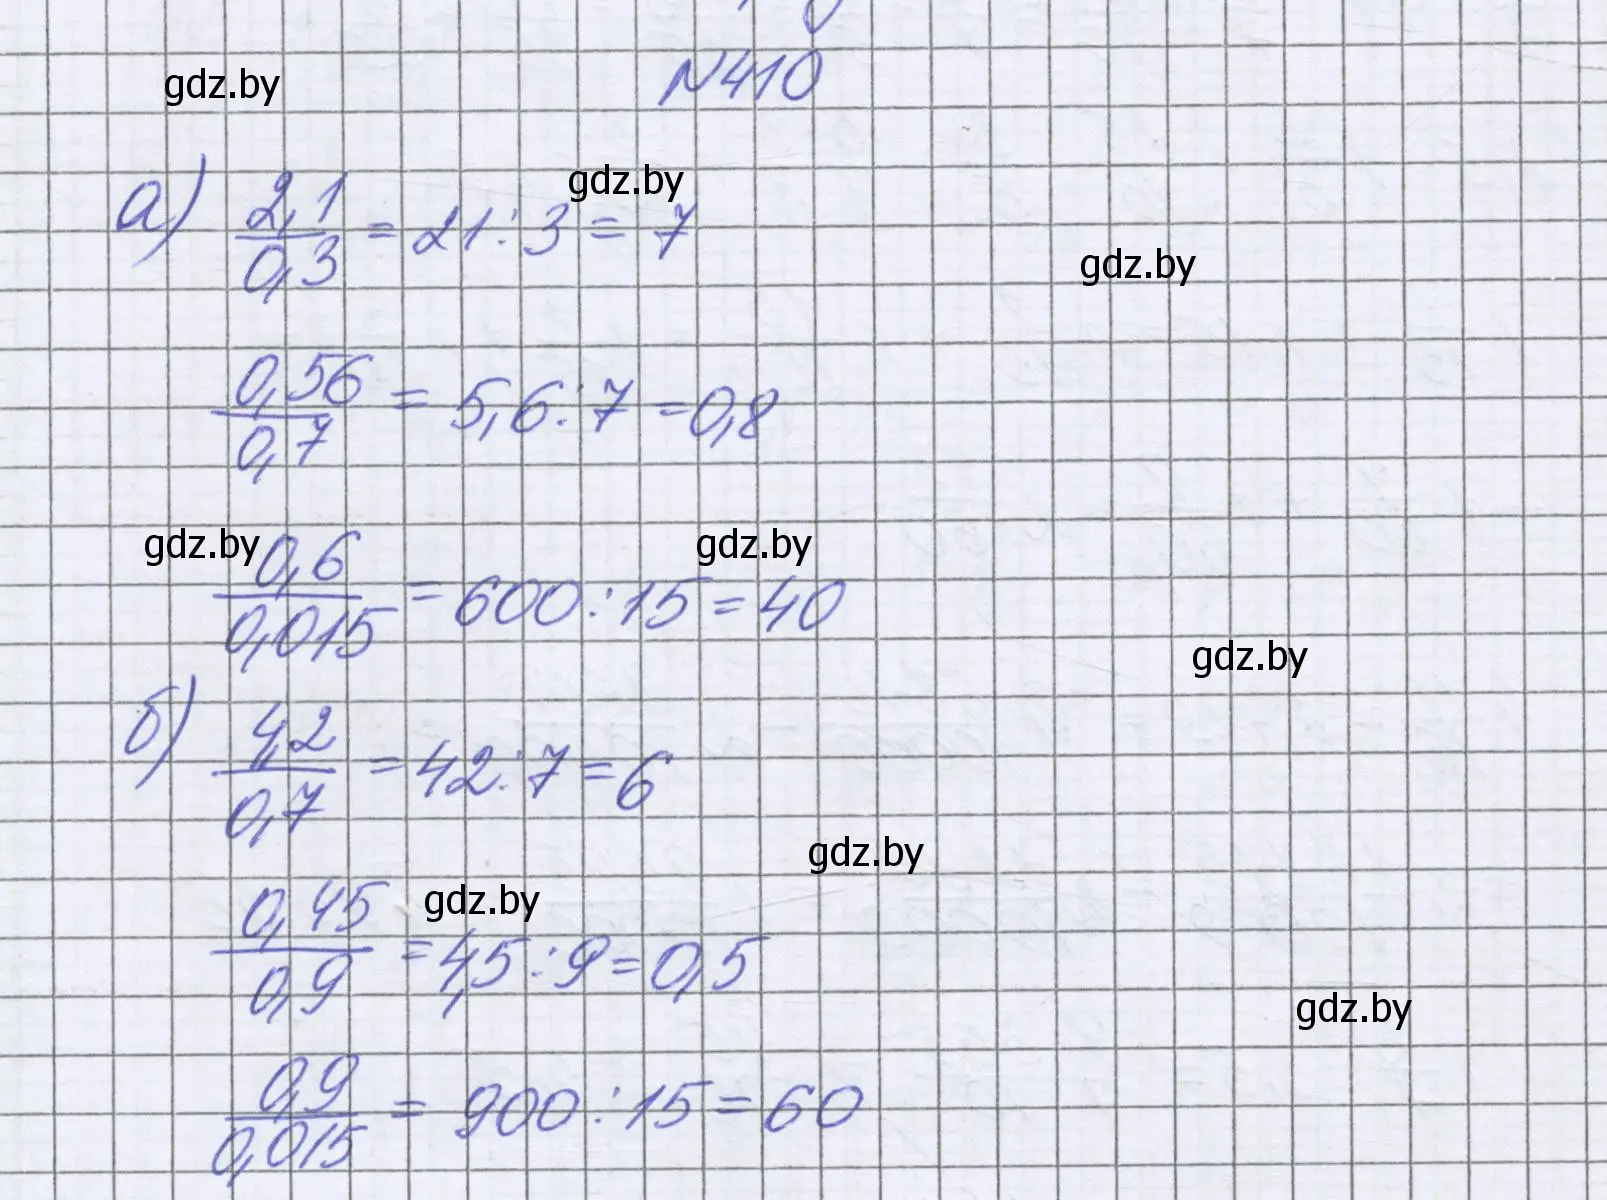 №410
gdz.by
а) 2,1/0,3 = 21:3 = 7
gdz.by
gdz.by
0,56/0,7 = 5,6:7 = 0,8
gdz.by
gdz.by
0,6/0,015 = 600:15 = 40
gdz.by
б) 4,2/0,7 = 42:7 = 6
gdz.by
gdz.by
0,45/0,9 = 4,5:9 = 0,5
gdz.by
0,9/0,015 = 900:15 = 60